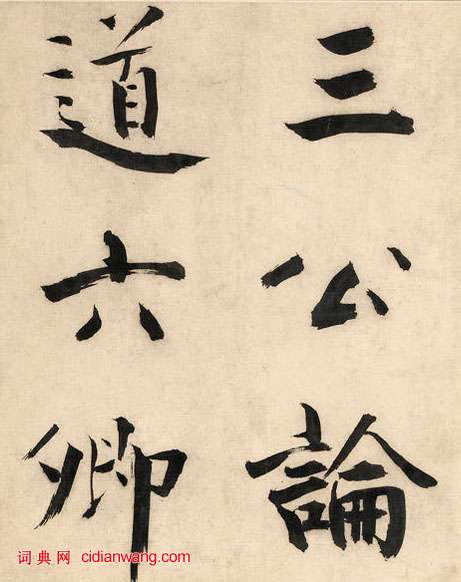 三公論
道六卿
词典网 cidianwang.com